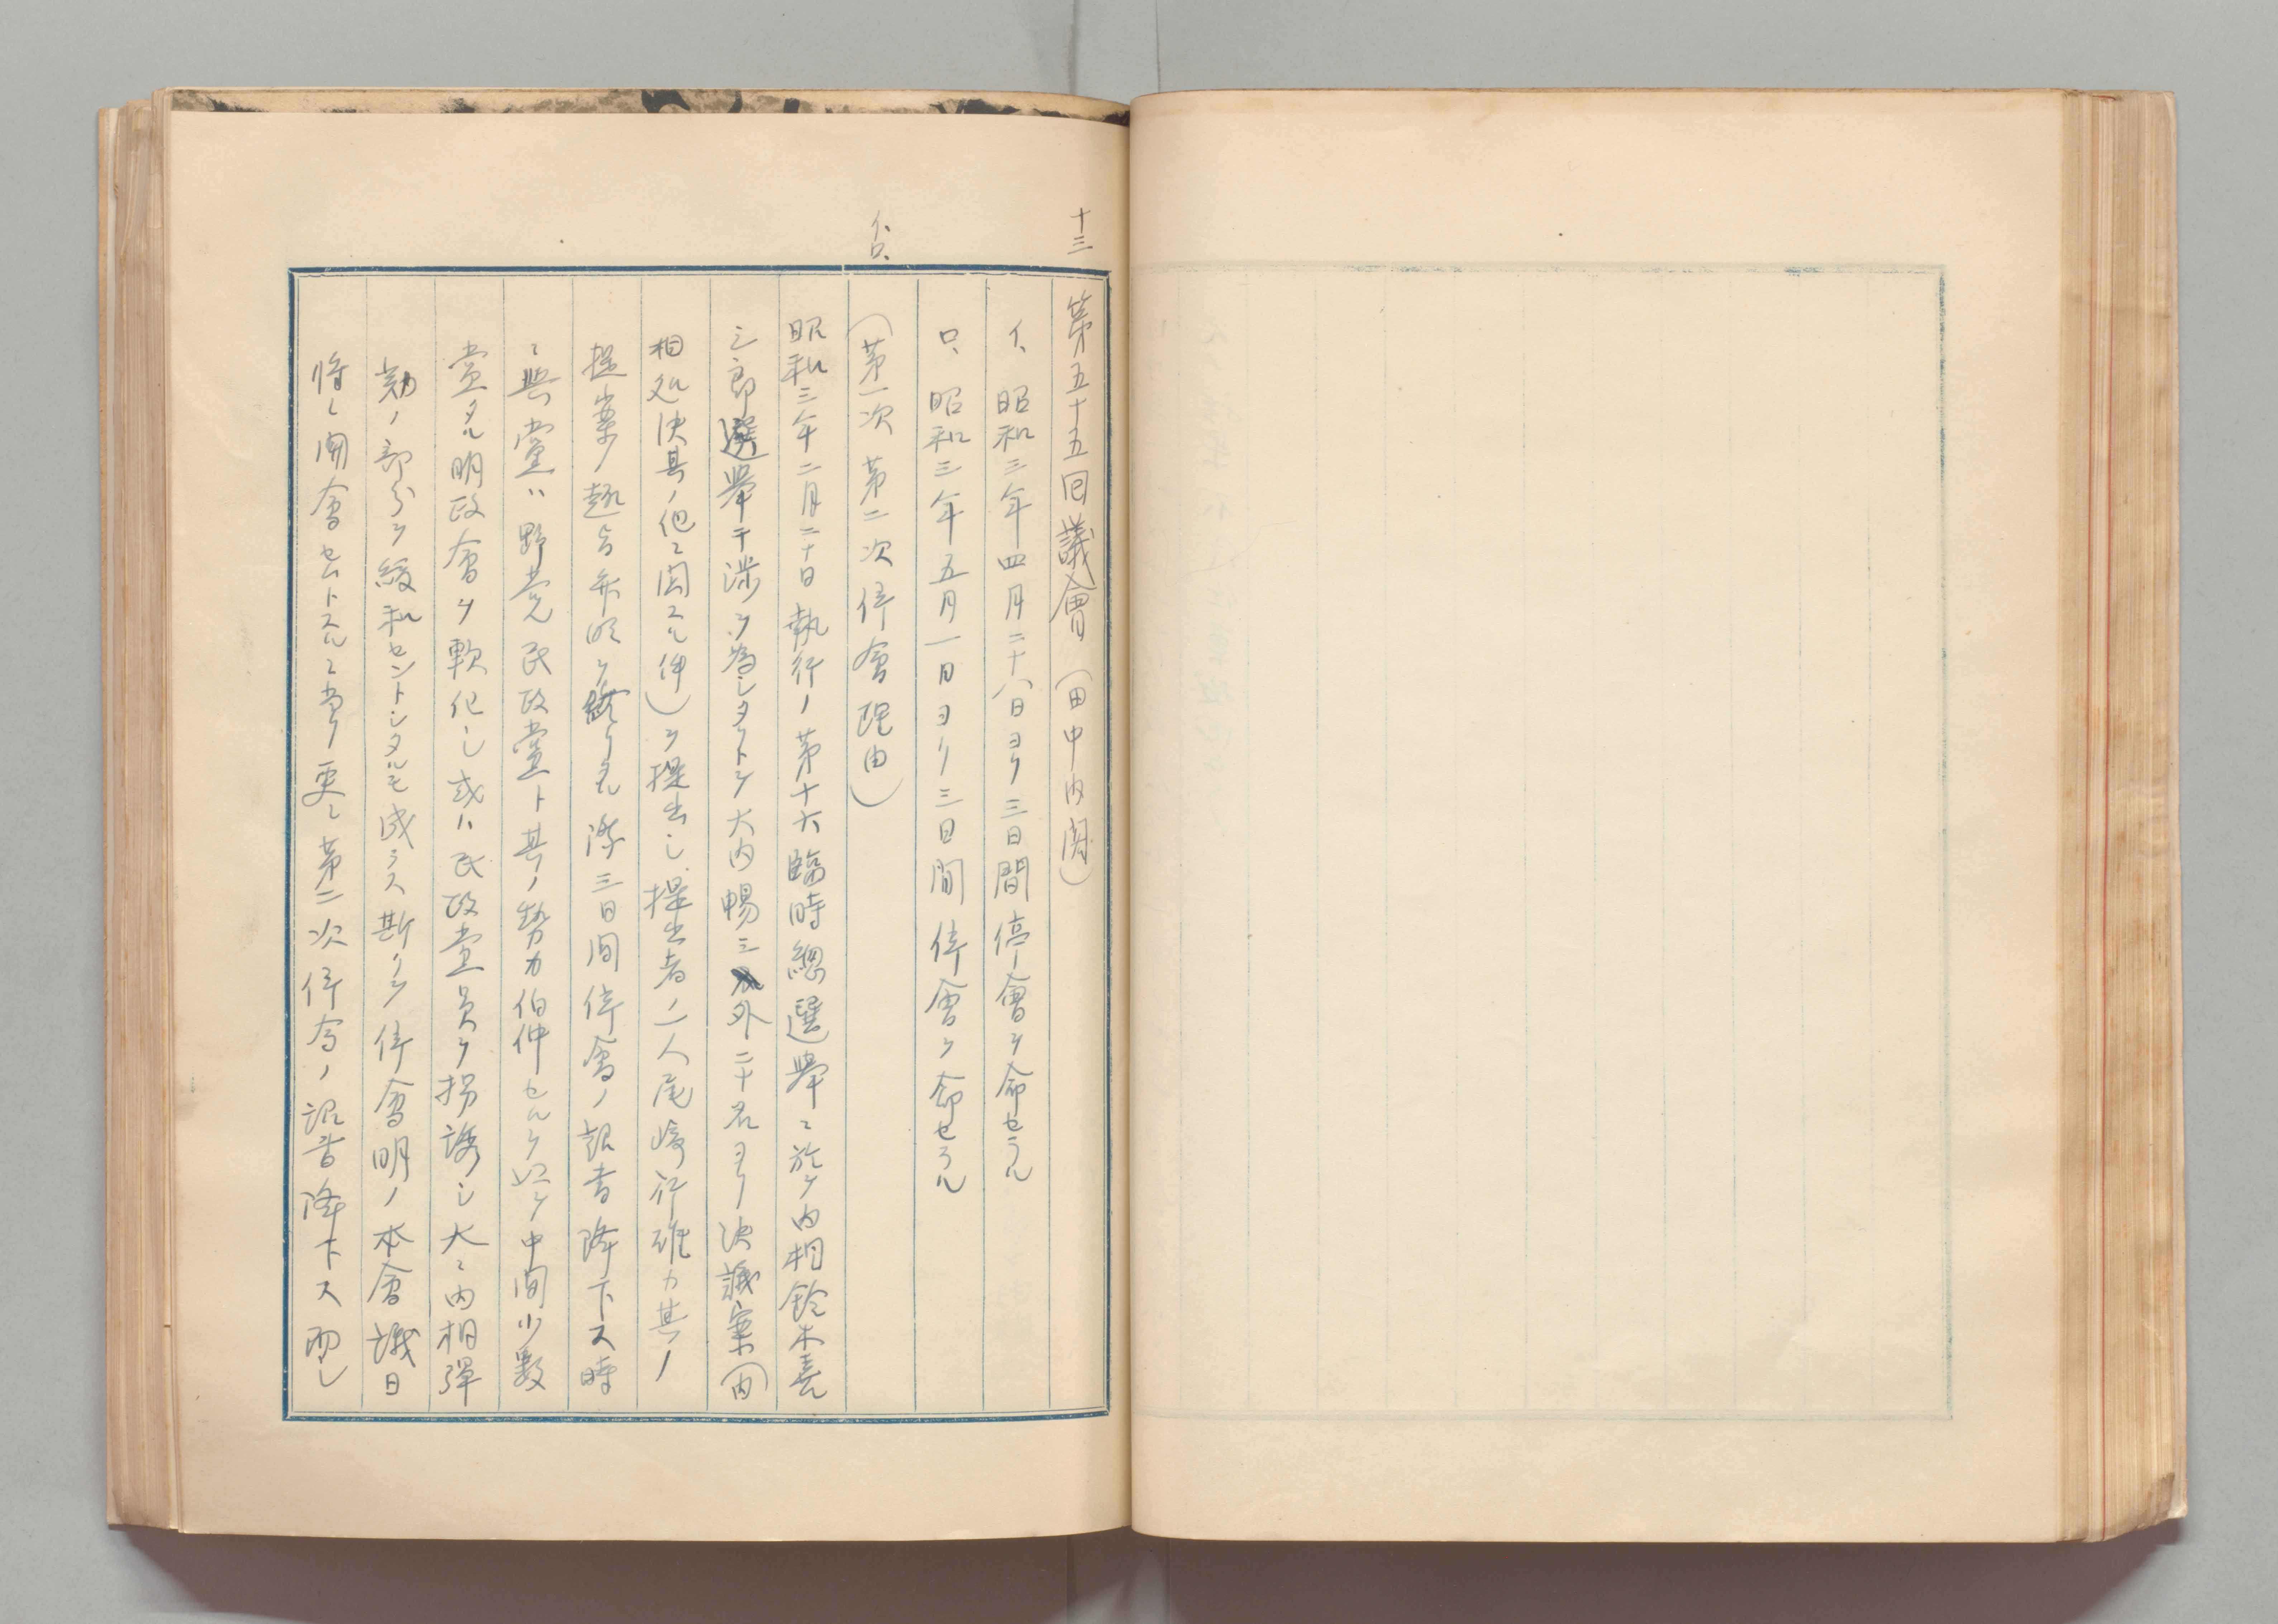 十三
第五十五回議會（田中内閣）
イ、昭和三年四月二十八日ヨリ三日間停會ヲ命セラル
ロ、昭和三年五月一日ヨリ三日間停會ヲ命セラル
イ、ロ、
（第一次第二次停會理由）
昭和三年二月二十日執行ノ第十六臨時總選擧ニ於ケ内相鈴木喜
三郎選擧干渉ヲ為シタリトシ大内暢三外二十名ヨリ決議案（内
相処決其ノ他ニ関スル件）ヲ提出シ提出者ノ一人尾崎行雄カ其ノ
提案ノ趣旨弁明ヲ終リタル際三日間停會ノ詔書降下ス時
ニ與黨ハ野党民政黨ト其ノ勢力伯仲セルヲ以テ中間少数
党タル明政會ヲ軟化シ或ハ民政党員ヲ拐誘シ大ニ内相彈
劾ノ部分ヲ緩和セントシタルモ成ラス斯クシテ停會明ノ本會議日
將ニ開會セムトスルニ當リ更ニ第二次停会ノ詔書降下ス而シ